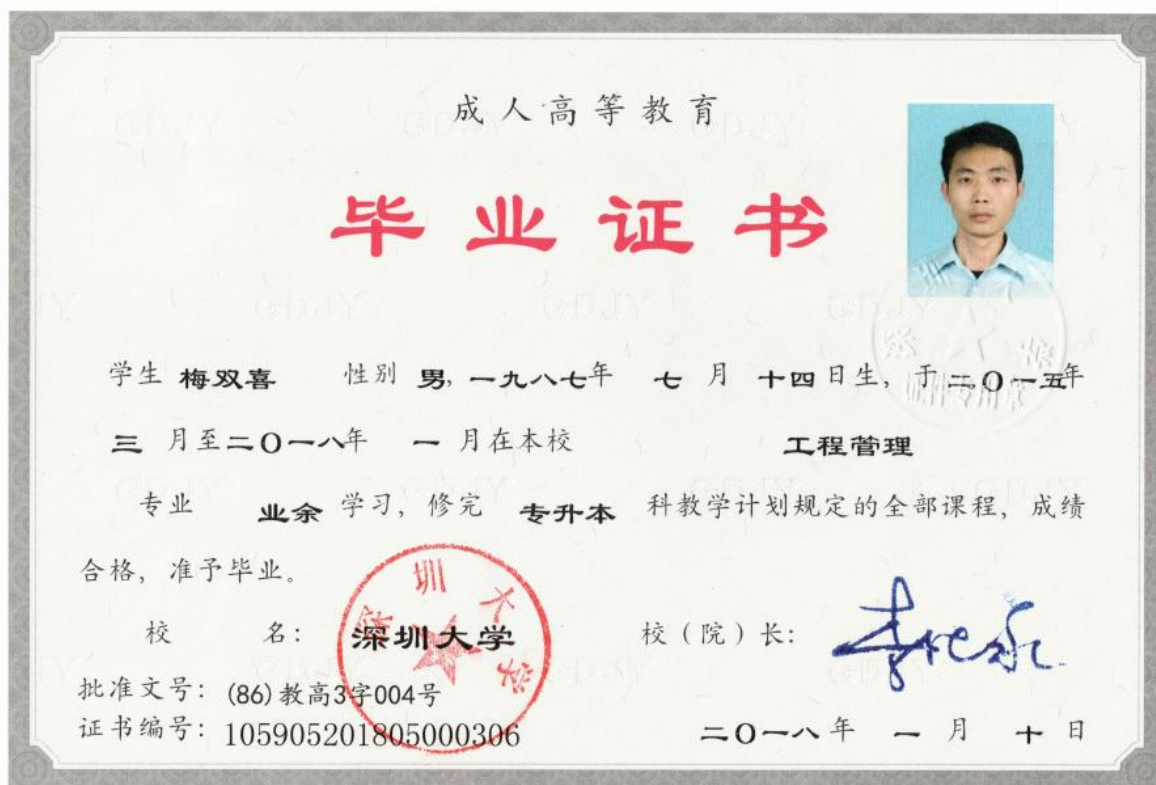 成人高等教育
毕业证书
学生 梅双喜 性别 男, 一九八七年 七 月 十四日生, 于二〇一五年
三 月至二〇一八年 一 月在本校 工程管理
专业 业余 学习, 修完 专升本 科教学计划规定的全部课程, 成绩
合格, 准予毕业。
校 名: 深圳大学 校(院)长:
批准文号: (86)教高3字004号
证书编号: 105905201805000306
二〇一八年 一 月 十 日
深圳大学
证件专用章
GDJY